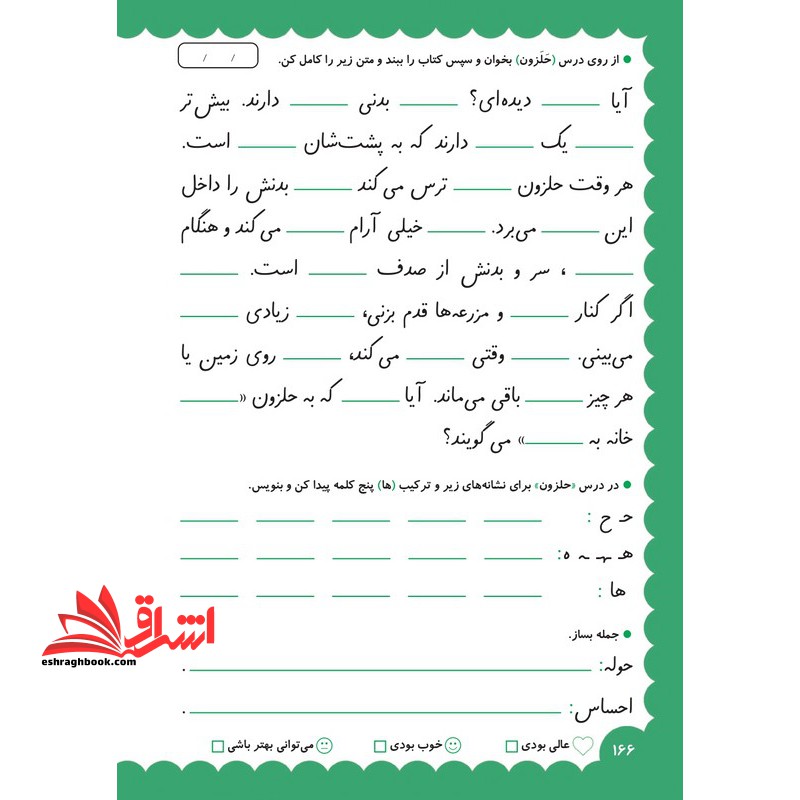 از روی درس (حَلَزون) بخوان و سپس کتاب را ببند و متن زیر را کامل کن.
/ /
آیا ______ دیده‌ای؟ ______ بدنی ______ دارند. بیش‌تر
______ یک ______ دارند که به پشت‌شان ______ است.
هر وقت حلزون ______ ترس می‌کند ______ بدنش را داخل
این ______ می‌برد. ______ خیلی آرام ______ می‌کند و هنگام
______ ، سر و بدنش از صدف ______ است. ______
اگر کنار ______ و مزرعه‌ها قدم بزنی، ______ زیادی ______
می‌بینی. ______ وقتی ______ می‌کند، ______ روی زمین یا
هر چیز ______ باقی می‌ماند. آیا ______ که به حلزون «______
خانه به ______» می‌گویند؟
در درس «حلزون» برای نشانه‌های زیر و ترکیب (ها) پنج کلمه پیدا کن و بنویس.
حـ ح : ______ ______ ______ ______ ______
هـ ـهـ ـه ه: ______ ______ ______ ______ ______
ها : ______ ______ ______ ______ ______
اشراق
eshraghbook.com
جمله بساز.
حوله: ______ .
احساس: ______ .
عالی بودی خوب بودی می‌توانی بهتر باشی
۱۶۶